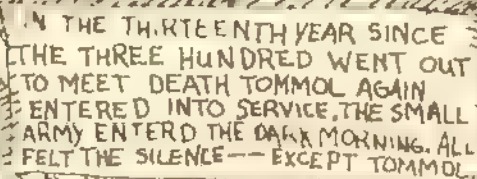 IN THE THIRTEENTH YEAR SINCE
THE THREE HUNDRED WENT OUT
TO MEET DEATH TOMMOL AGAIN
ENTERED INTO SERVICE. THE SMALL
ARMY ENTERD THE DARK MORNING. ALL
FELT THE SILENCE-- EXCEPT TOMMOL.